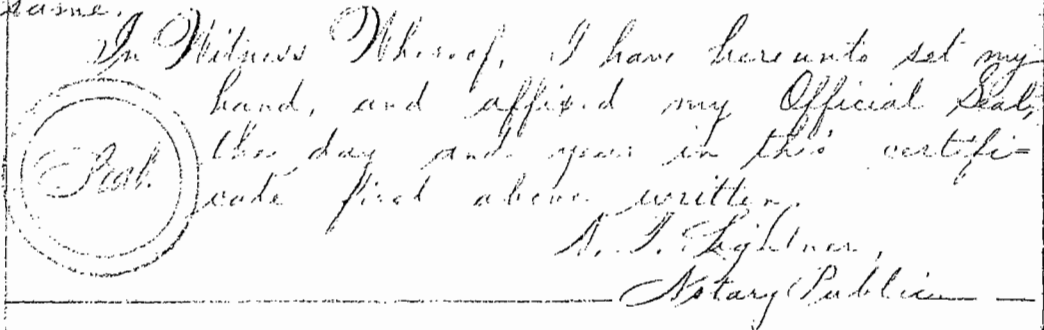 name.
In Witness Whereof, I have hereunto set my
hand, and affixed my Official Seal,
the day and year in this certifi=
Seal.
cate first above written.
A. T. Lightner,
Notary Public